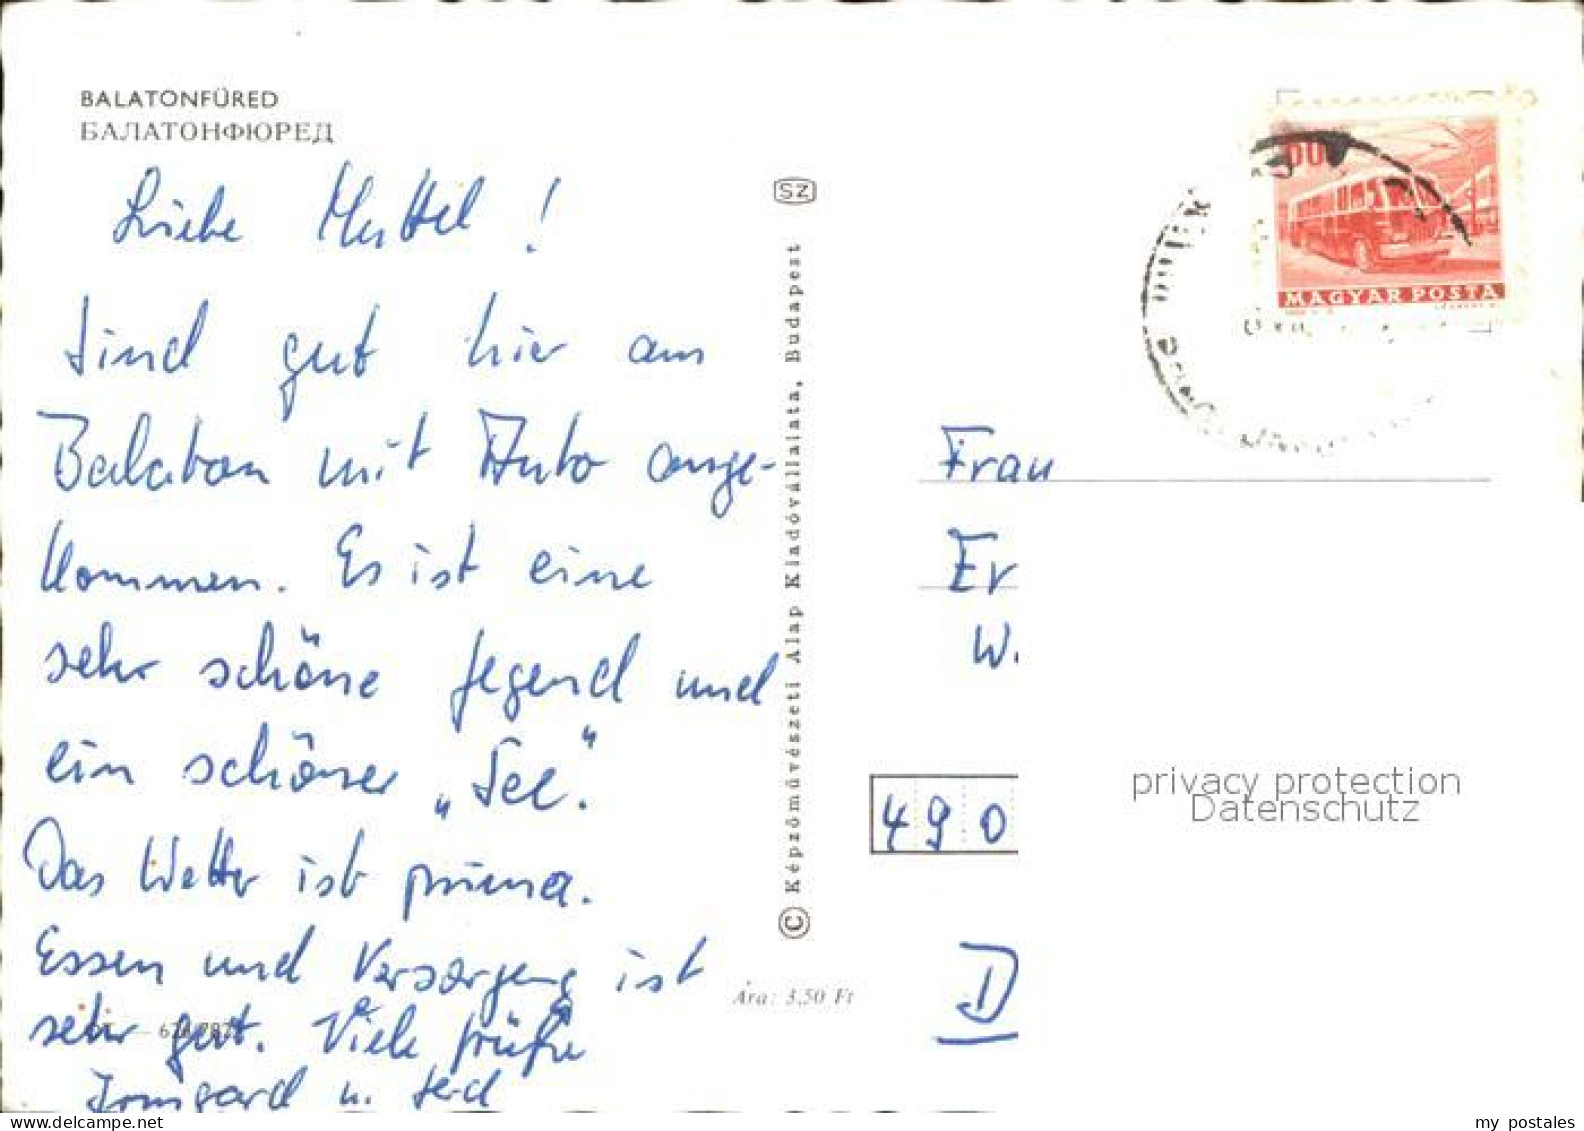 BALATONFÜRED
БАЛАТОНФЮРЕД
Liebe Muttel !
Sind gut hier am
Balaton mit Auto ange-
kommen. Es ist eine
sehr schöne Gegend und
ein schöner „See“.
Das Wetter ist prima.
Essen und Versorgung ist
sehr gut. Viele Grüße
Irmgard u. Gerd
SZ
© Képzőművészeti Alap Kiadóvállalata, Budapest
Ára: 3,50 Ft
60
MAGYAR POSTA
Frau
Er
W.
490
D
privacy protection
Datenschutz
my postales